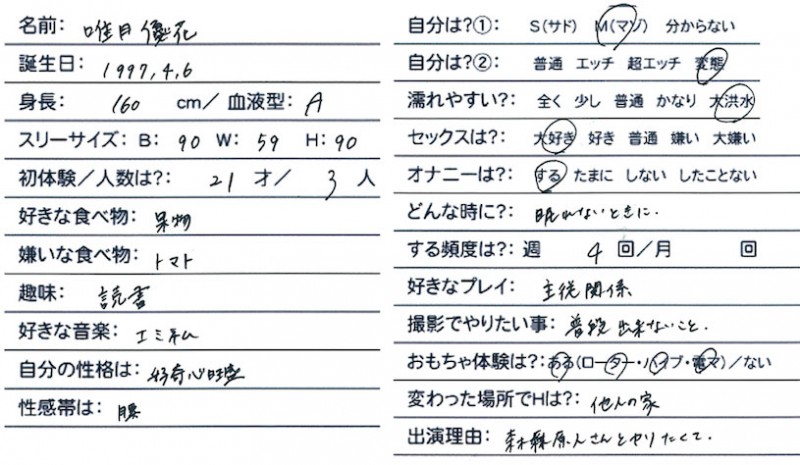 名前: 唯月優花
誕生日: 1997,4,6
身長: 160 cm/血液型: A
スリーサイズ: B: 90 W: 59 H: 90
初体験/人数は?: 21 才/ 3 人
好きな食べ物: 果物
嫌いな食べ物: トマト
趣味: 読書
好きな音楽: エミネム
自分の性格は: 好奇心旺盛
性感帯は: 腰
自分は?①: S(サド) M(マゾ) 分からない
自分は?②: 普通 エッチ 超エッチ 変態
濡れやすい?: 全く 少し 普通 かなり 大洪水
セックスは?: 大好き 好き 普通 嫌い 大嫌い
オナニーは?: する たまに しない したことない
どんな時に?: 眠れないときに.
する頻度は?: 週 4 回/月 回
好きなプレイ: 主従関係
撮影でやりたい事: 普段出来ないこと.
おもちゃ体験は?: ある(ローター・バイブ・電マ)/ない
変わった場所でHは?: 他人の家
出演理由: 原人さんとやりたくて.